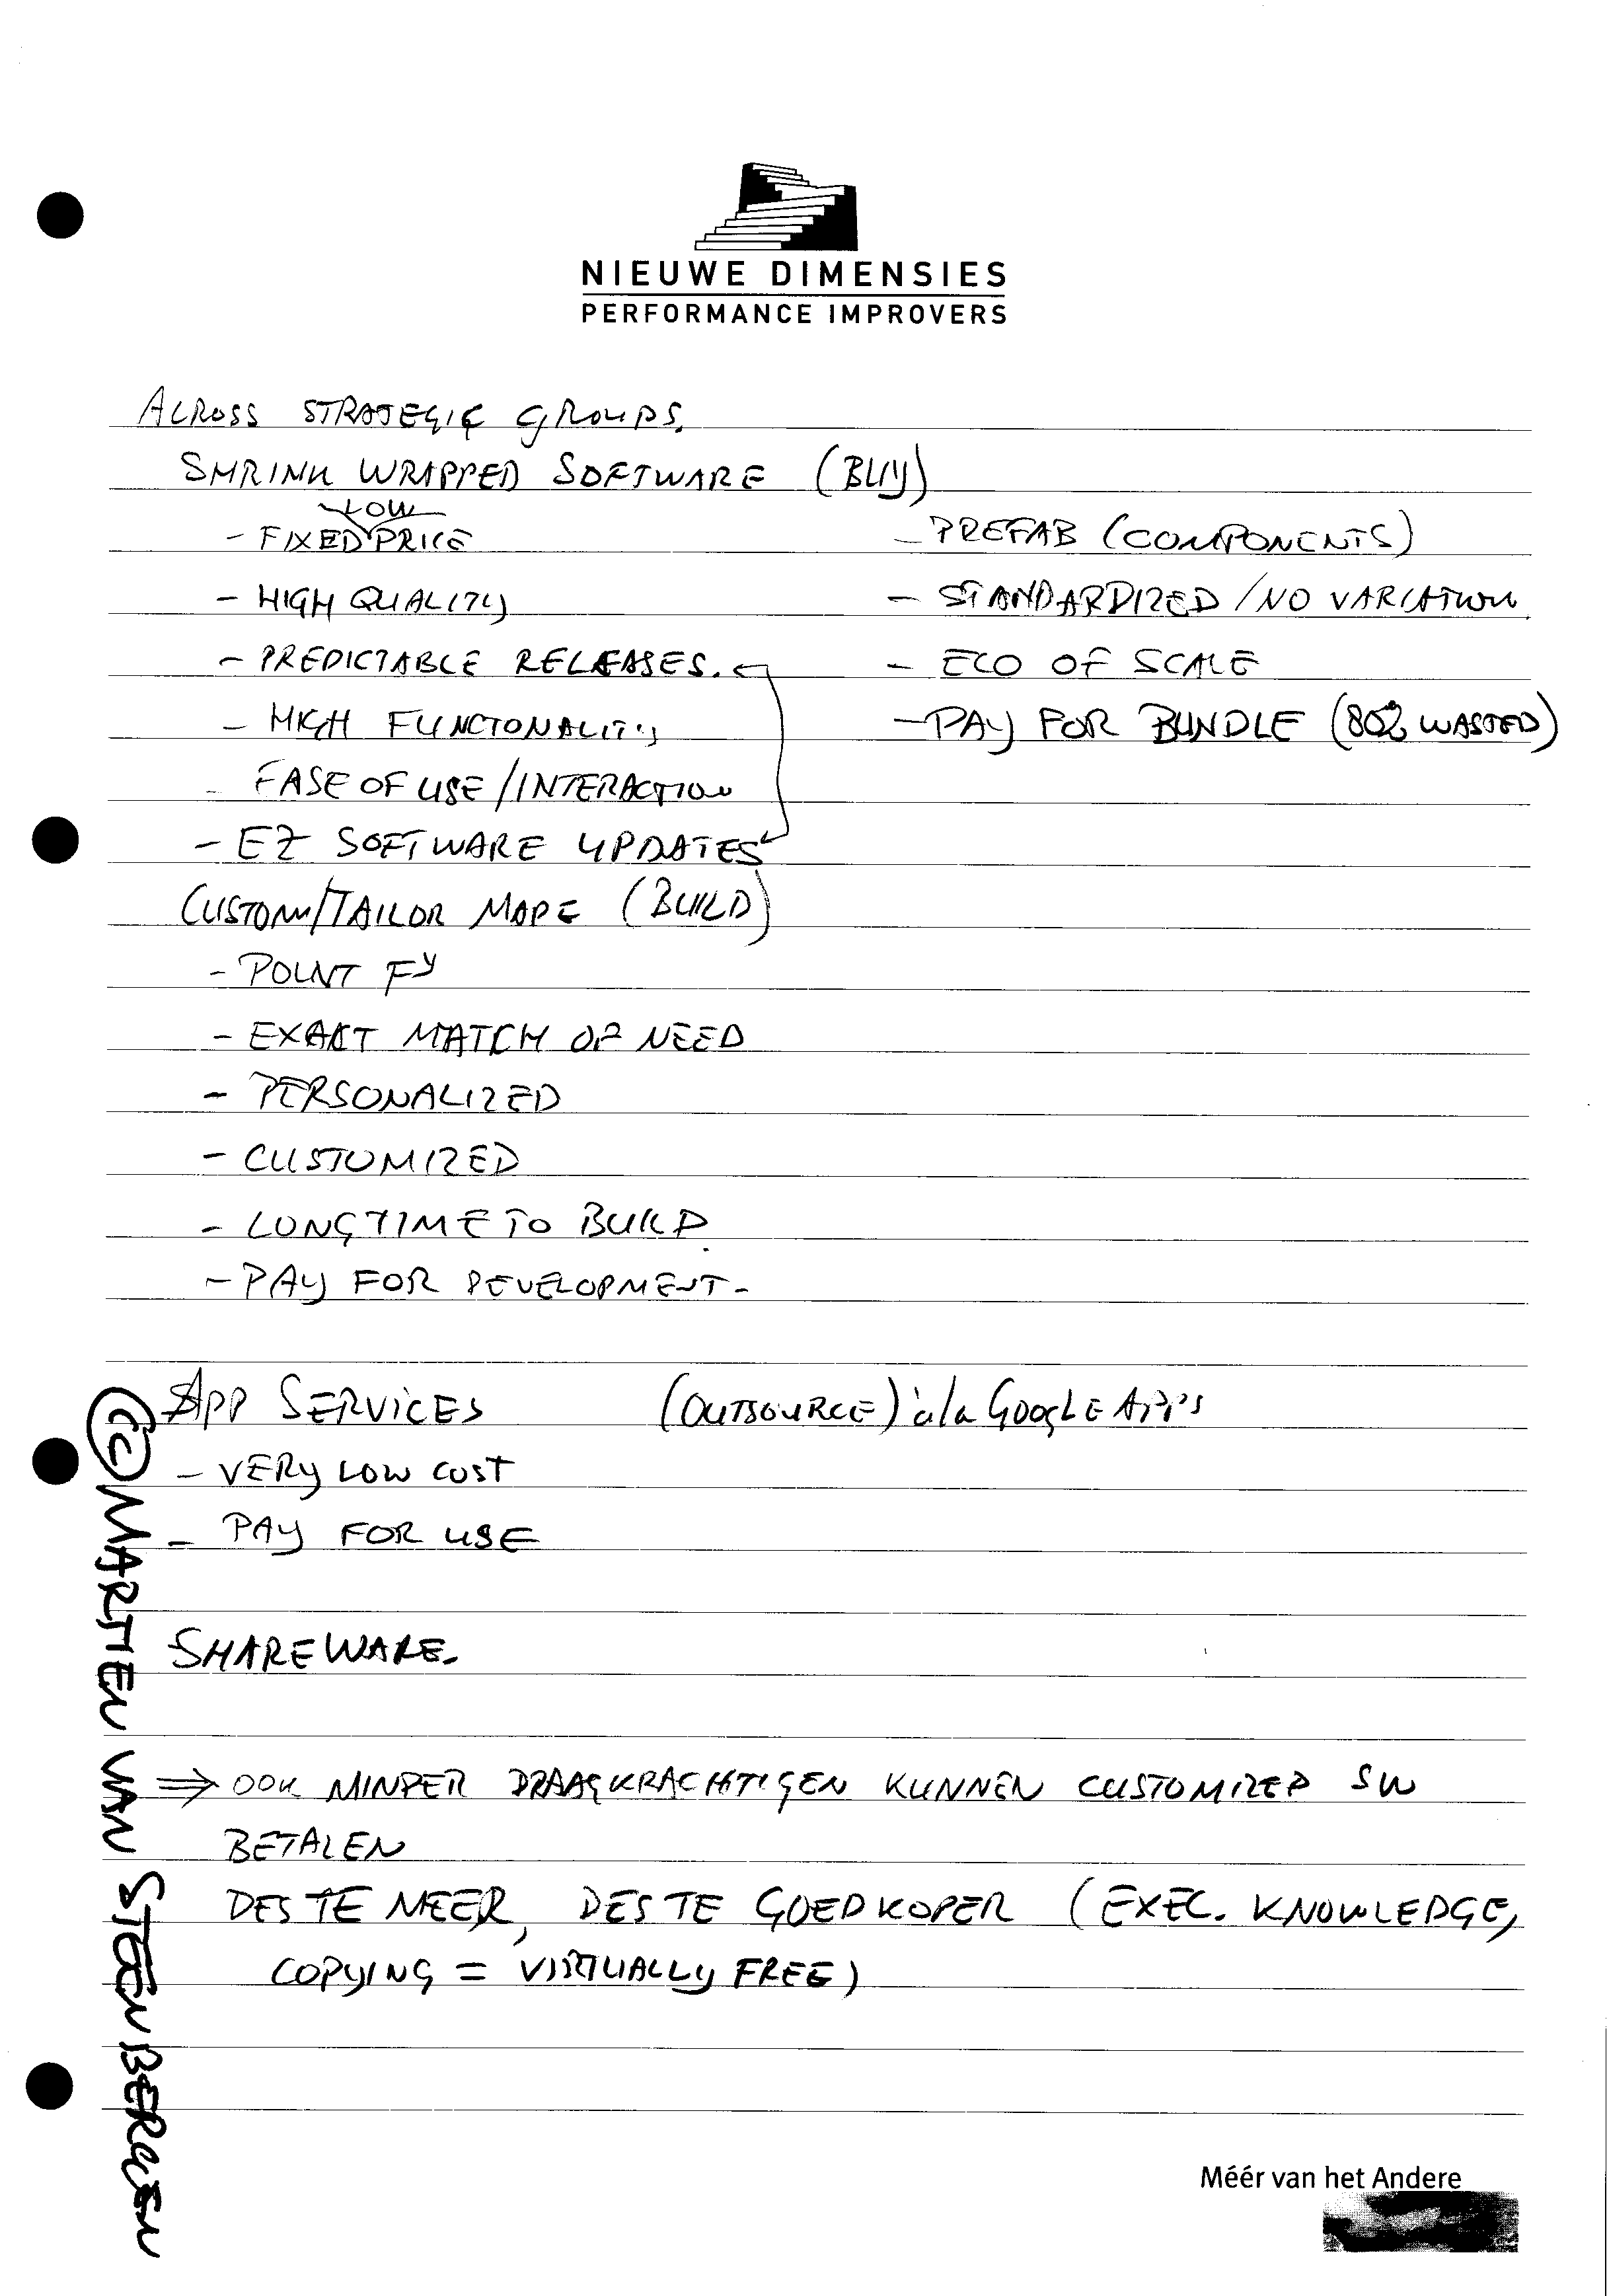 NIEUWE DIMENSIES
PERFORMANCE IMPROVERS
ACROSS STRATEGIC GROUPS.
SHRINK WRAPPED SOFTWARE (BUY)
LOW
- FIXED PRICE
- HIGH QUALITY
- PREDICTABLE RELEASES.
- HIGH FUNCTONALITY
- EASE OF USE/INTERACTION
- EZ SOFTWARE UPDATES
- PREFAB (COMPONENTS)
- STANDARDIZED/NO VARIATION.
- ECO OF SCALE
- PAY FOR BUNDLE (80% WASTED)
CUSTOM/TAILOR MADE (BUILD)
- POINT FY
- EXACT MATCH OF NEED
- PERSONALIZED
- CUSTOMIZED
- LONG TIME TO BUILD.
- PAY FOR DEVELOPMENT-
APP SERVICES (OUTSOURCE) à la GOOGLE APP'S
- VERY LOW COST
- PAY FOR USE
SHAREWARE.
⇒ OOK MINDER DRAAGKRACHTIGEN KUNNEN CUSTOMIZED SW
BETALEN
DES TE MEER, DES TE GOEDKOPER (EXEC. KNOWLEDGE,
COPYING = VIRTUALLY FREE)
© MARTIEN VAN STEENBERGEN
Méér van het Andere